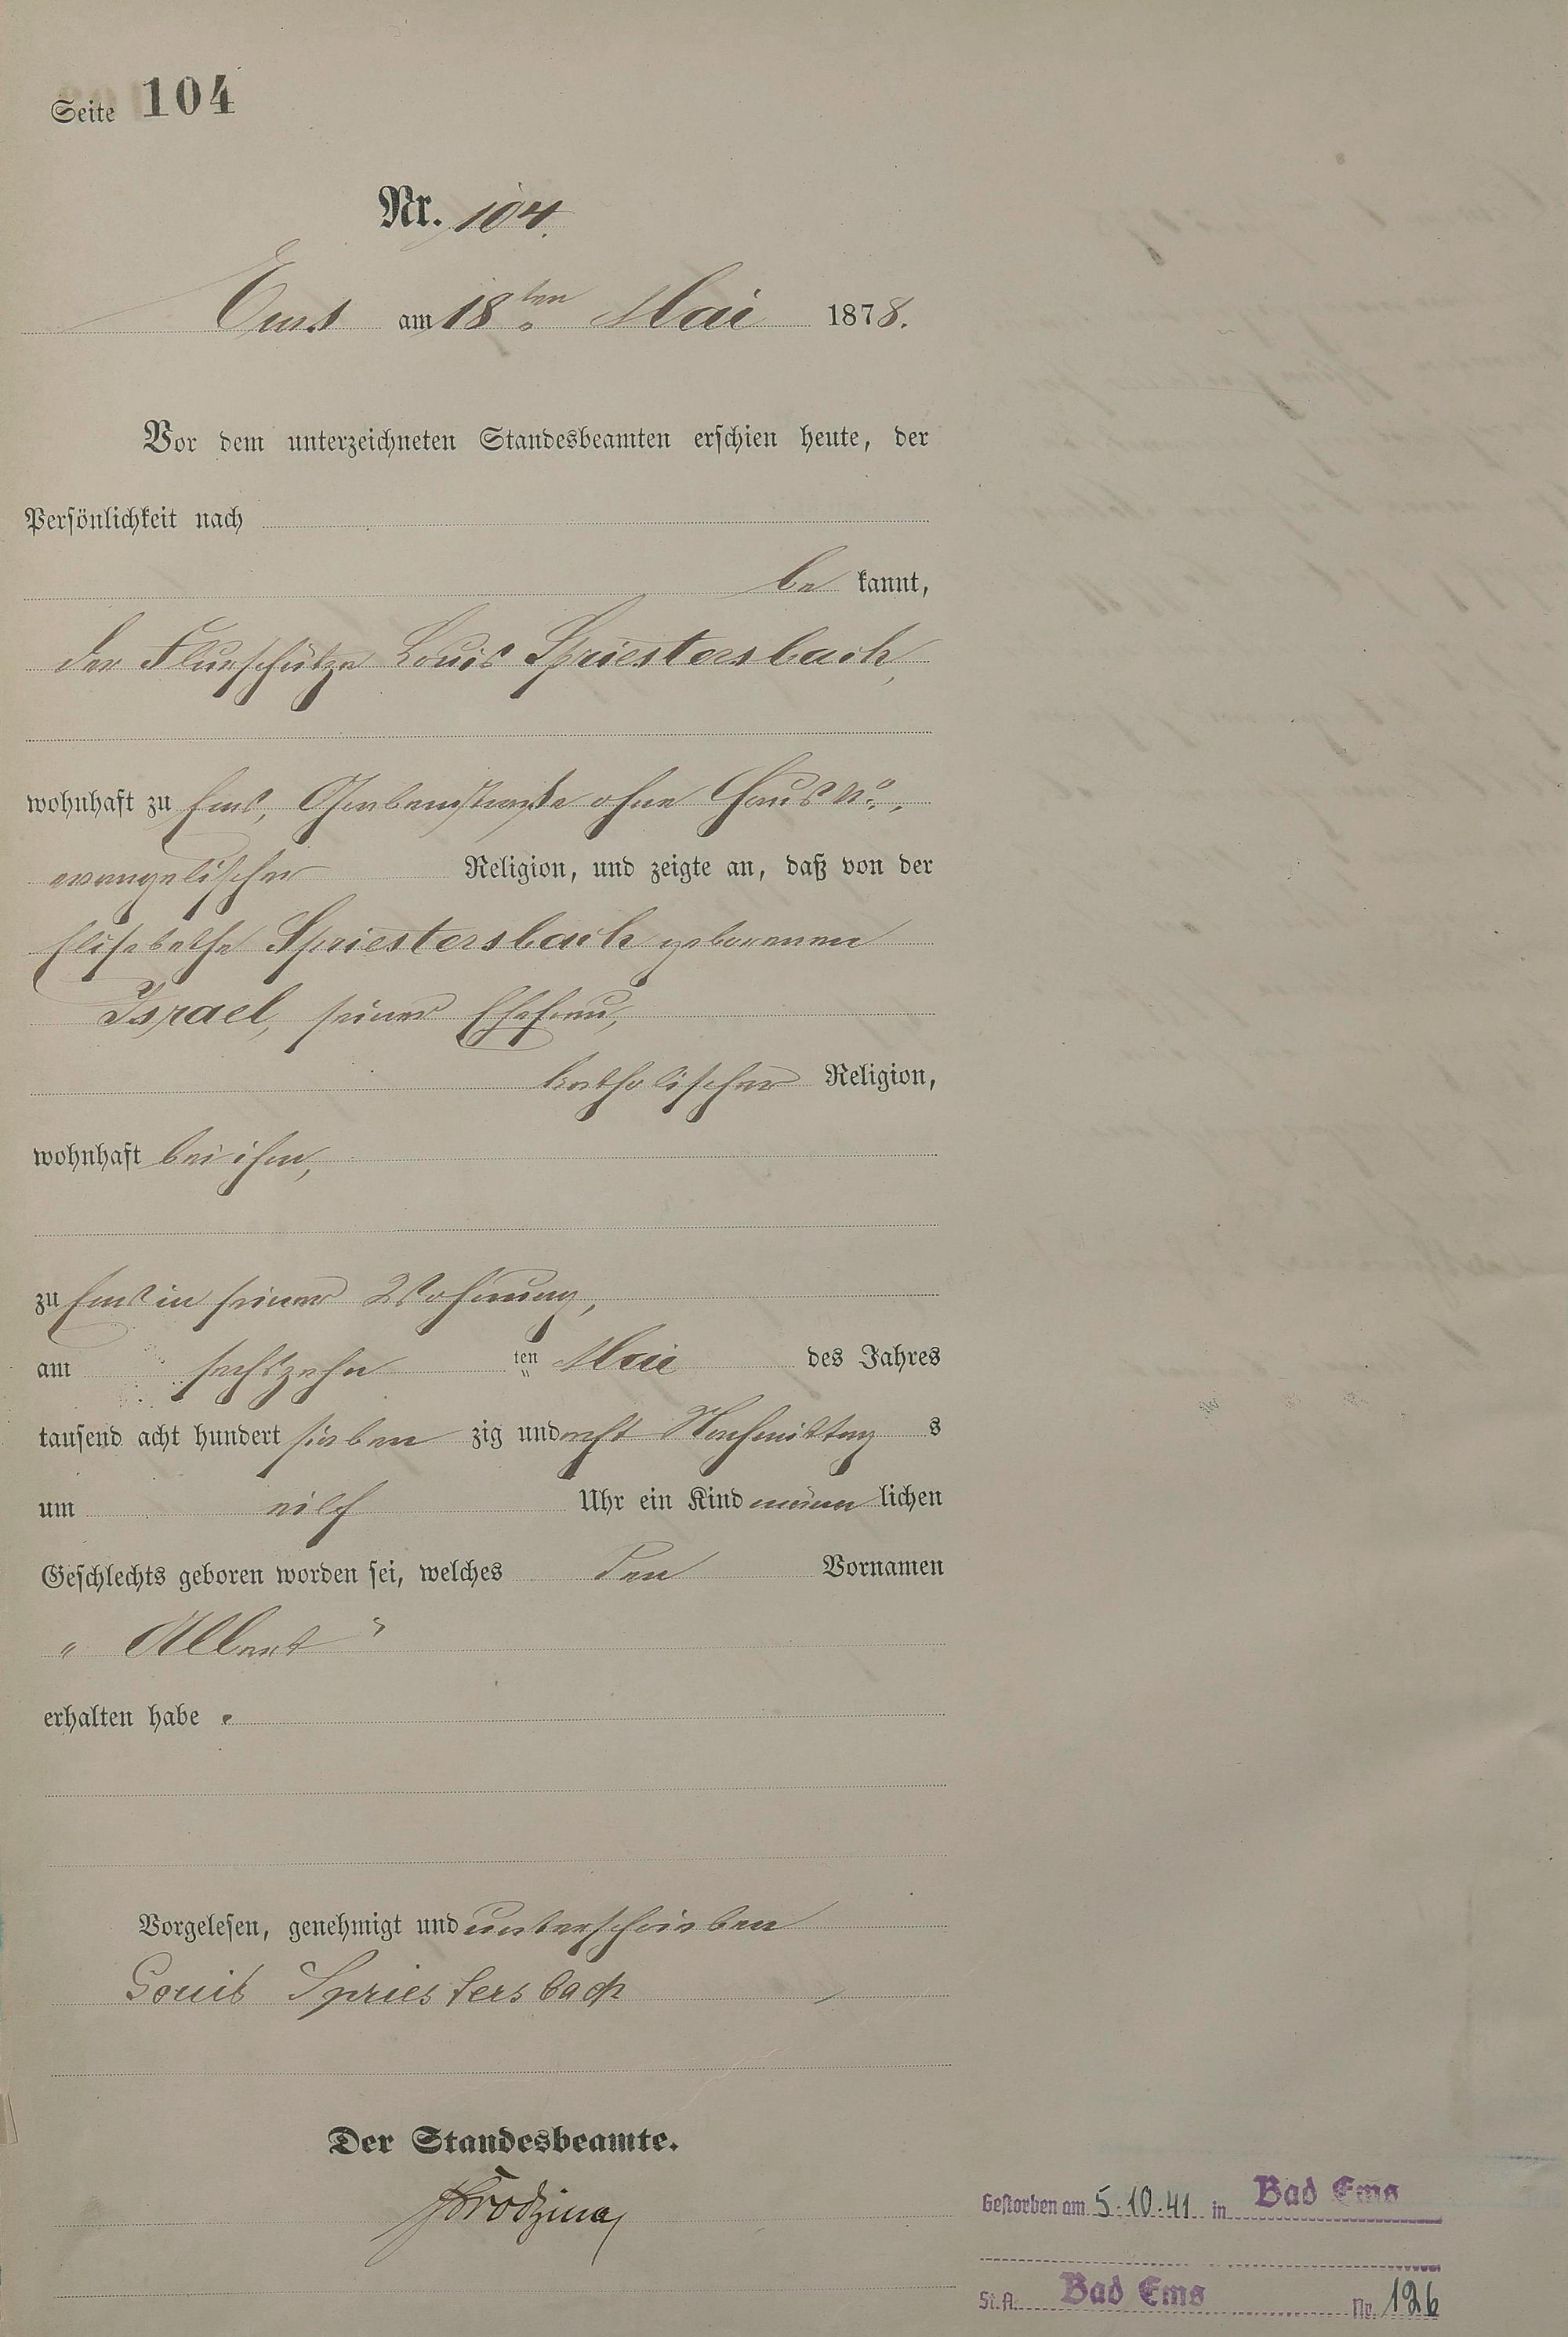 Seite 104
Nr. 104.
Ems am 18ten Mai 1878.
Vor dem unterzeichneten Standesbeamten erschien heute, der
Persönlichkeit nach
be kannt,
der Flurschütze Louis Spriestersbach,
wohnhaft zu Ems, ohne Haus No.,
evangelischer Religion, und zeigte an, daß von der
Elisabethe Spriestersbach geborenen
Israel, seiner Ehefrau,
katholischer Religion,
wohnhaft bei ihm,
zu Ems in seiner Wohnung,
am sechszehn ten Mai des Jahres
tausend acht hundert sieben zig und acht Nachmittag s
um eilf Uhr ein Kind männ lichen
Geschlechts geboren worden sei, welches den Vornamen
"Albert"
erhalten habe.
Vorgelesen, genehmigt und unterschrieben
Louis Spriestersbach
Der Standesbeamte.
Gestorben am 5.10.41 in Bad Ems
St. A. Bad Ems Nr. 126